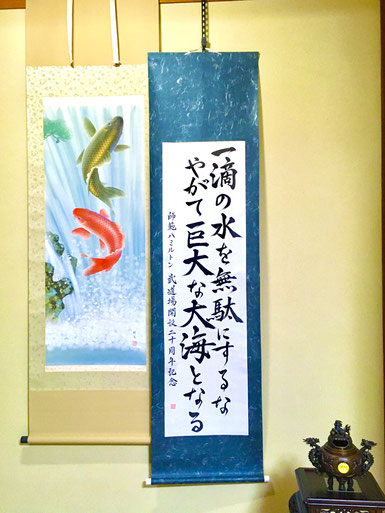 一滴の水を無駄にするな
やがて巨大な大海となる
師範ハミルトン 武道場開設二十周年記念